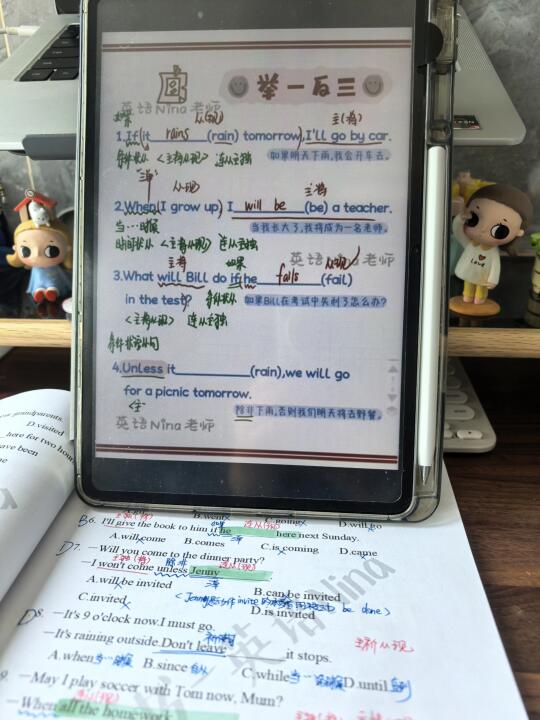 举一反三
英语Nina老师
如果 从(现) 主(将)
1.If(it rains (rain) tomorrow),I'll go by car.
条件状从 <主将从现> 连从主独 如果明天下雨,我会开车去。
从现 主将
2.When(I grow up) I will be (be) a teacher.
当…时候 当我长大了,我将成为一名老师。
时间状从 <主将从现> 连从主独
英语 老师
主将 如果 从(现)
3.What will Bill do if he fails (fail)
in the test? 条件状从 如果Bill在考试中失利了怎么办?
<主将从现> 连从主独
条件状语从句
4.Unless it (rain),we will go
for a picnic tomorrow.
除非下雨,否则我们明天将去野餐。
英语Nina老师
grandparents.
D.visited
here for two hour
ave been
me
B.went C.going D.will go
主将(将) 如果 连从(现)
B 6. I'll give the book to him if he here next Sunday.
A.will come B.comes C.is coming D.came
D 7. —Will you come to the dinner party?
除非 连从(现)
—I won't come unless Jenny
A.will be invited B.can be invited
C.invited D.is invited
D 8. —It's 9 o'clock now.I must go.
主祈从现
—It's raining outside.Don't leave it stops.
A.when B.since C.while D.until
9. —May I play soccer with Tom now, Mum?
—When all the homework